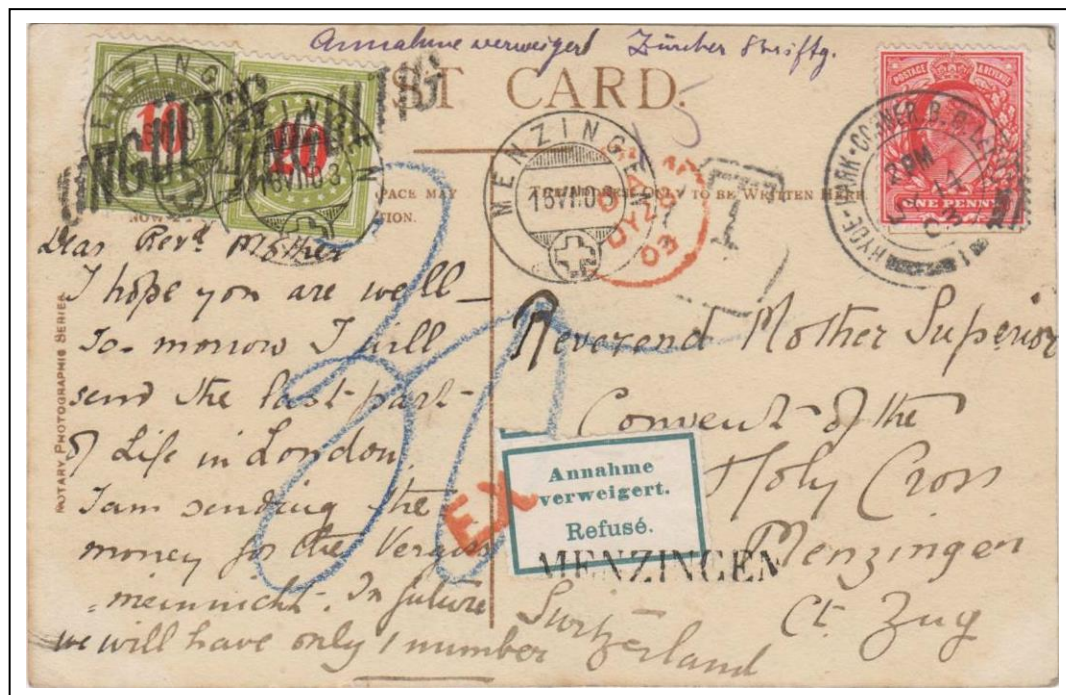 Annahme verweigert Zürcher
POST CARD.
MENZINGEN
10
UNGÜLTIG
MENZINGEN
16 VII 03
20
UNGÜLTIG
MENZINGEN
16 VII 03
JY 20
03
T
POSTAGE & REVENUE
ONE PENNY
HYDE-PARK-CORNER B.O.
JY 14
03
SPACE MAY
TION.
THE ADDRESS ONLY TO BE WRITTEN HERE
ROTARY PHOTOGRAPHIC SERIES
Dear Revd Mother
I hope you are well—
To-morrow I will
send the last part
of Life in London.
I am sending the
money for the Vergiss
meinnicht. In future
we will have only 1 number
30
Reverend Mother Superior
Convent of the
Holy Cross
Menzingen
Ct. Zug
Switzerland
EX
Annahme
verweigert.
Refusé.
MENZINGEN